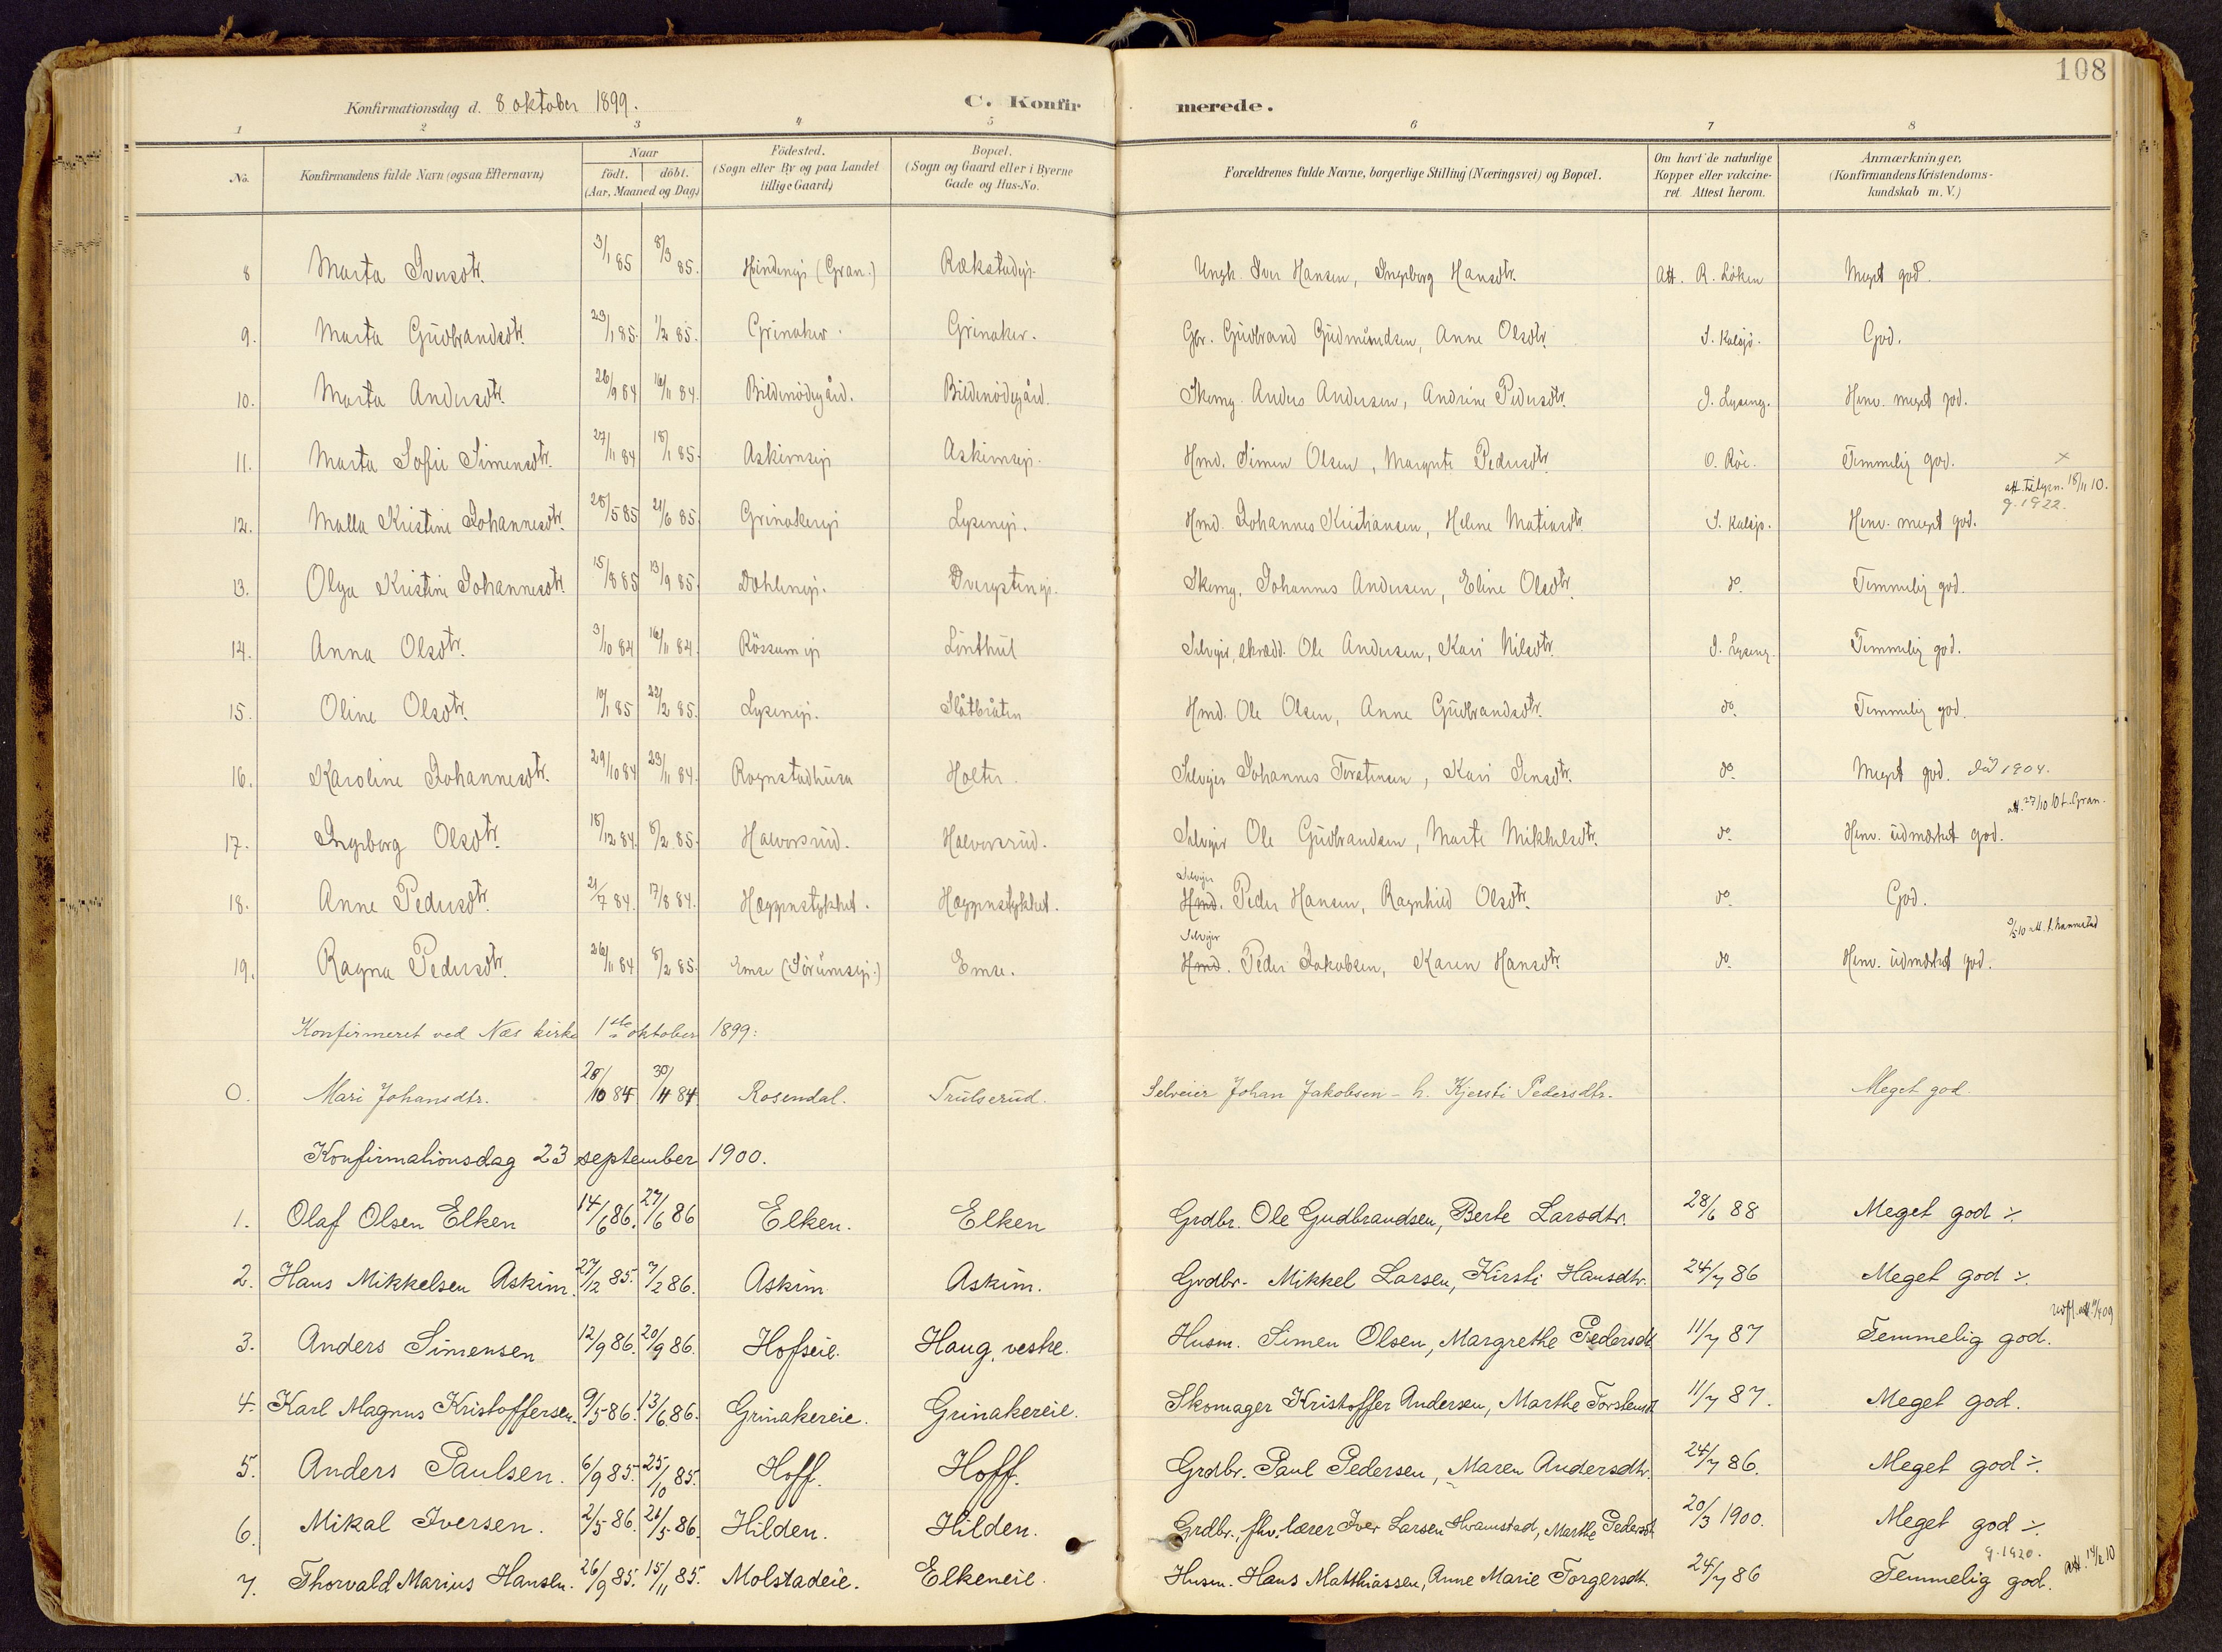 108
Konfirmationsdag d. 8 oktober 1899. C. Konfirmerede.
1 2 3 4 5 6 7 8
No. Konfirmandens fulde Navn (ogsaa Efternavn) Naar födt. döbt. (Aar, Maaned og Dag) Födested. (Sogn eller By og paa Landet tillige Gaard) Bopæl. (Sogn og Gaard eller i Byerne Gade og Hus-No. Forældrenes fulde Navne, borgerlige Stilling (Næringsvei) og Bopæl. Om havt de naturlige Kopper eller vakcineret. Attest herom. Anmærkninger. (Konfirmandens Kristendomskundskab m. V.)
8 Marta Iversdtr. 3/1 85 8/3 85. (Gran.) Rækstadeje. Ungk. Iver Hansen, Ingeborg Hansdtr. Att. R. Löken Meget god.
9. Marta Gudbrandsdtr. 29/1 85. 1/2 85. Grinaker. Grinaker. Gbr. Gudbrand Gudmundsen, Anne Olsdtr. I. Kulsjö. God.
10. Marta Andersdtr. 26/9 84 16/11 84. Bildenödegård. Bildenödegård. Skomg. Anders Andersen, Andrine Pedersdtr. I. Lyseng. Henv. meget god.
11. Marta Sofie Simensdtr. 27/11 84 18/1 85. Askimseje Askimseje. Hmd. Simen Olsen, Margrete Pedersdtr. O. Röe. Temmelig god. x
att. 18/11 10.
g. 1922.
12. Malla Kristine Johannesdtr. 28/5 85 21/6 85. Grinakereje Lyseneje. Hmd. Johannes Kristiansen, Helene Matiasdtr. I. Kulsjö. Henv. meget god.
13. Olga Kristine Johannesdtr. 15/8 85 13/9 85. Dæhleneje. Dvergsteneje. Skomg. Johannes Andersen, Eline Olsdtr. do Temmelig god.
14. Anna Olsdtr. 3/10 84 16/11 84. Rössumeje Lönthul Selveier, skrædd. Ole Andersen, Kari Nilsdtr. I. Lyseng. Temmelig god.
15. Oline Olsdtr. 10/1 85 22/2 85. Lyseneje. Slåtbråten Hmd. Ole Olsen, Anne Gudbrandsdtr. do. Temmelig god.
16. Karoline Johannesdtr. 29/10 84 23/11 84. Rognstadhusa Holter. Selveier Johannes Torstensen, Kari Jensdtr. do Meget god. död 1904.
att. 27/10 t. Gran.
17. Ingeborg Olsdtr. 18/12 84. 8/2 85. Halvorsrud. Halvorsrud. Selveier Ole Gudbrandsen, Marte Mikkelsdtr. do Henv. udmerket god.
Selveier
18. Anne Pedersdtr. 21/7 84. 17/8 84. Hæggenstykket. Hæggenstykket. Hmd. Peder Hansen, Ragnhild Olsdtr. do God.
Selveier
19. Ragna Pedersdtr. 26/11 84 8/2 85. Emse (Sörumseje.) Emse. Hmd. Peder Jakobsen, Karen Hansdtr. do. Henv. udmerket god.
Konfirmeret ved Næs kirke 1ste oktober 1899:
0. Mari Johansdtr. 28/10 84 30/11 84 Rosendal. Trulserud. Selveier Johan Jakobsen – h. Kjersti Pedersdtr. Meget god.
Konfirmationsdag 23 september 1900.
1. Olaf Olsen Elken 14/6 86. 27/6 86 Elken. Elken Grdbr. Ole Gudbrandsen, Berte Larsdtr. 28/6 88 Meget god ÷
2. Hans Mikkelsen Askim. 27/12 85. 7/2 86. Askim Askim. Grdbr. Mikkel Larsen, Kirsti Hansdtr. 24/7 86 Meget god ÷.
3. Anders Simensen 12/9 86. 20/9 86. Hofseie. Haug, vestre. Husm. Simen Olsen, Margrethe Pedersdt 11/7 87 Temmelig god.
4. Karl Magnus Kristoffersen. 9/5 86. 13/6 86. Grinakereie. Grinakereie. Skomager Kristoffer Andersen, Marthe Torstensd 11/7 87. Meget god.
5. Anders Paulsen. 6/9 85. 25/10 85. Hoff. Hoff. Grdbr. Paul Pedersen, Maren Andersdtr. 24/7 86. Meget god ÷.
6. Mikal Iversen. 2/5 86. 21/5 86. Hilden. Hilden. Grdbr., fhv. lærer Iver Larsen Hvamstad, Marthe Pedersdt 20/3 1900. Meget god ÷.
g. 1920. att. 14/2 10
7. Thorvald Marius Hansen. 26/9 85. 15/11 85. Molstadeie. Elkeneie. Husm. Hans Matthiassen, Anne Marie Torgersdt. 24/7 86 Temmelig god.